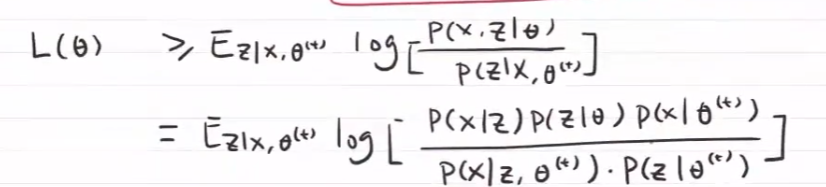 L(θ) ⩾ E_{z|x,θ^{(t)}} log[ \frac{P(x,z|θ)}{P(z|x,θ^{(t)})} ]
= E_{z|x,θ^{(t)}} log[ \frac{P(x|z)P(z|θ)P(x|θ^{(t)})}{P(x|z,θ^{(t)})·P(z|θ^{(t)})} ]